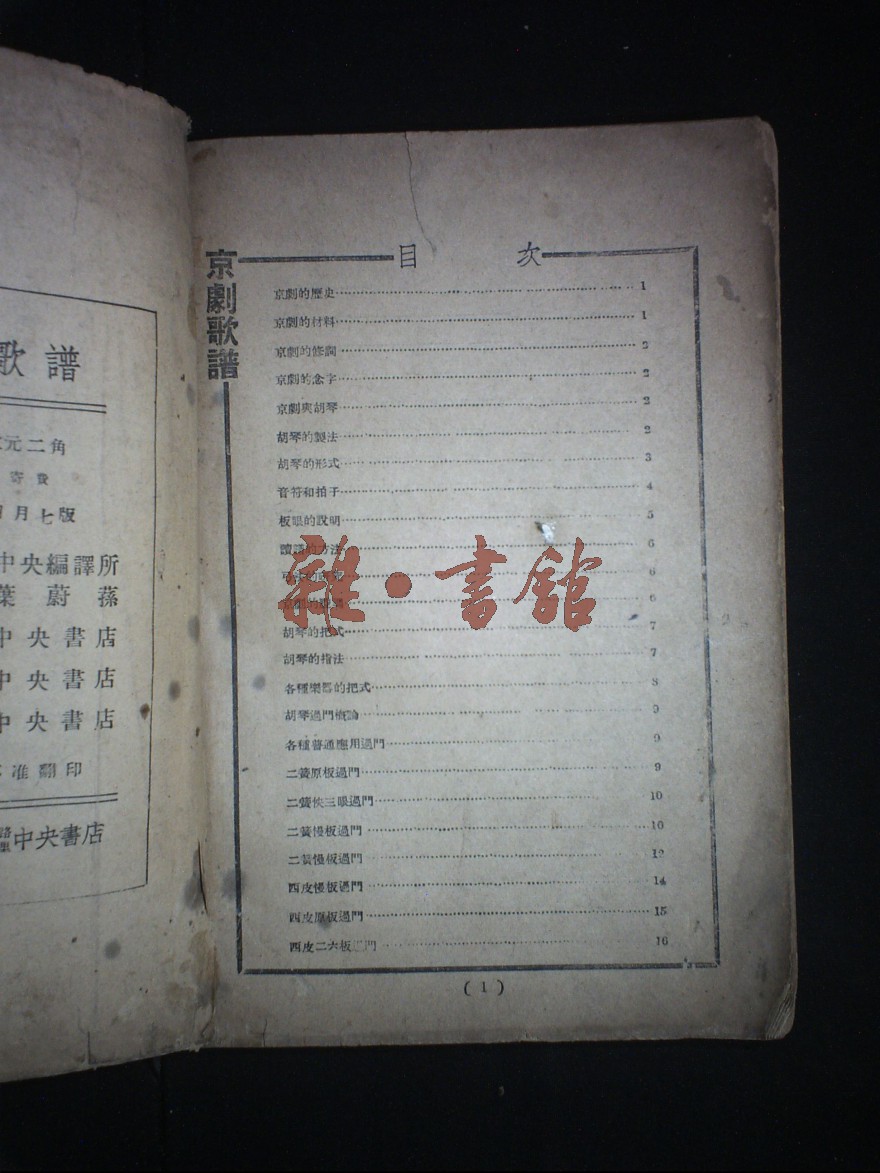 歌譜
元二角
寄費
月七版
中央編譯所
葉蔚蓀
中央書店
中央書店
中央書店
准翻印
中央書店
京劇歌譜
目次
京劇的歷史 1
京劇的材料 1
京劇的修詞 2
京劇的念字 2
京劇與胡琴 2
胡琴的製法 2
胡琴的形式 3
音符和拍子 4
板眼的說明 5
讀譜的方法 6
6
京劇的 6
胡琴的把式 7
胡琴的指法 7
各種樂器的把式 8
胡琴過門概論 9
各種普通應用過門 9
二簧原板過門 9
二簧快三眼過門 10
二簧慢板過門 10
二簧慢板過門 12
西皮慢板過門 14
西皮原板過門 15
西皮二六板過門 16
(1)
雜·書館